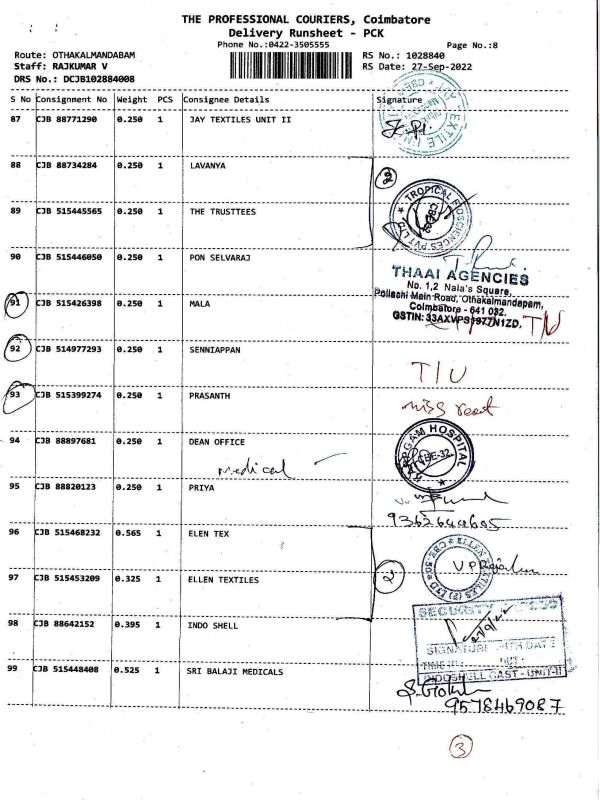 THE PROFESSIONAL COURIERS, Coimbatore
Delivery Runsheet - PCK
Phone No.:0422-3505555
Page No.:8
Route: OTHAKALMANDABAM
RS No.: 1028840
Staff: RAJKUMAR V
RS Date: 27-Sep-2022
DRS No.: DCJB102884008
S No Consignment No Weight PCS Consignee Details Signature
87 CJB 88771290 0.250 1 JAY TEXTILES UNIT II
88 CJB 88734284 0.250 1 LAVANYA
TROPICAL BIOSCIENCES PVT LTD
89 CJB 515445565 0.250 1 THE TRUSTTEES
90 CJB 515446050 0.250 1 PON SELVARAJ
THAAI AGENCIES
No. 1,2 Nala's Square,
Pollachi Main Road, Othakalmandapam,
Coimbatore - 641 032.
GSTIN: 33AXVPS1977N1ZD.
91 CJB 515426398 0.250 1 MALA
92 CJB 514977293 0.250 1 SENNIAPPAN
T/U
93 CJB 515399274 0.250 1 PRASANTH
miss root
94 CJB 88897681 0.250 1 DEAN OFFICE
medical
HOSPITAL
CBE-32
95 CJB 88820123 0.250 1 PRIYA
96 CJB 515468232 0.565 1 ELEN TEX
97 CJB 515453209 0.325 1 ELLEN TEXTILES
2
98 CJB 88642152 0.395 1 INDO SHELL
SECURITY
INDOSHELL CAST - UNIT-II
99 CJB 515448408 0.525 1 SRI BALAJI MEDICALS
9578469087
3